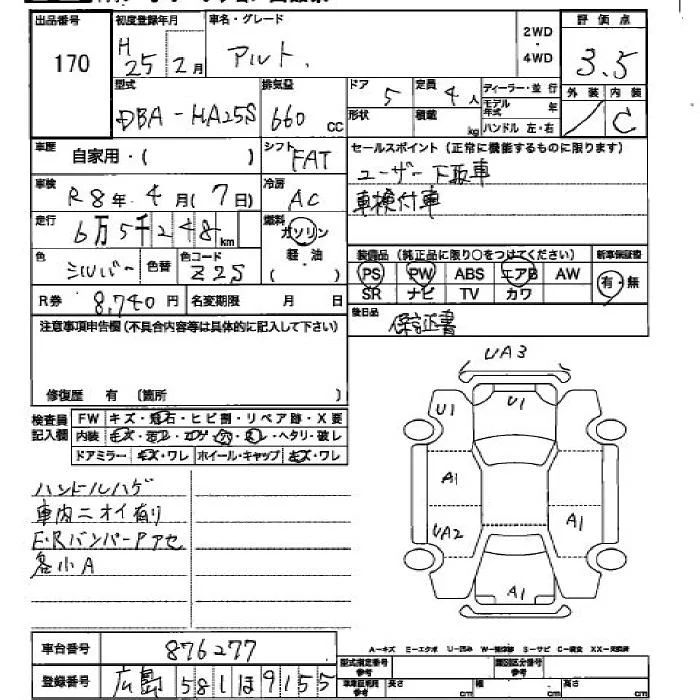 出品番号 初度登録年月 車名・グレード 2WD・4WD 評価点
170 H25年2月 アルト. 3.5
型式 排気量 ドア 定員 ディーラー・並行 外装 内装
DBA-HA25S 660cc 5 4人 モデル年式 年 C
形状 積載 kg ハンドル 左・右
車歴 自家用・( ) シフト FAT セールスポイント(正常に機能するものに限ります)
ユーザー下取車
車検 R8年4月(7日) 冷房 AC 車検付車
走行 6万5千248km 燃料 ガソリン
軽・油 ( )
色 シルバー 色替 色コード Z2S
装備品(純正品に限り○をつけてください) 新車保証書
PS PW ABS エアB AW 有・無
SR ナビ TV カワ
R券 8,740円 名変期限 月 日
後日品 保証書
注意事項申告欄(不具合内容等は具体的に記入して下さい)
修復歴 有 〔箇所 〕
検査員記入欄 FW キズ・飛石・ヒビ割・リペア跡・X要
内装 キズ・汚レ・コゲ・穴・スレ・ヘタリ・破レ
ドアミラー キズ・ワレ ホイール・キャップ キズ・ワレ
ハンドルハゲ
車内ニオイ有り
F・RバンパーPアセ
各小A
UA3
U1 U1
A1
UA2 A1
A1
車台番号 876277
登録番号 広島 581 ほ 9155
A-キズ E-エクボ U-凹み S-サビ
型式指定番号 類別区分番号
長さ cm 幅 cm 高さ cm